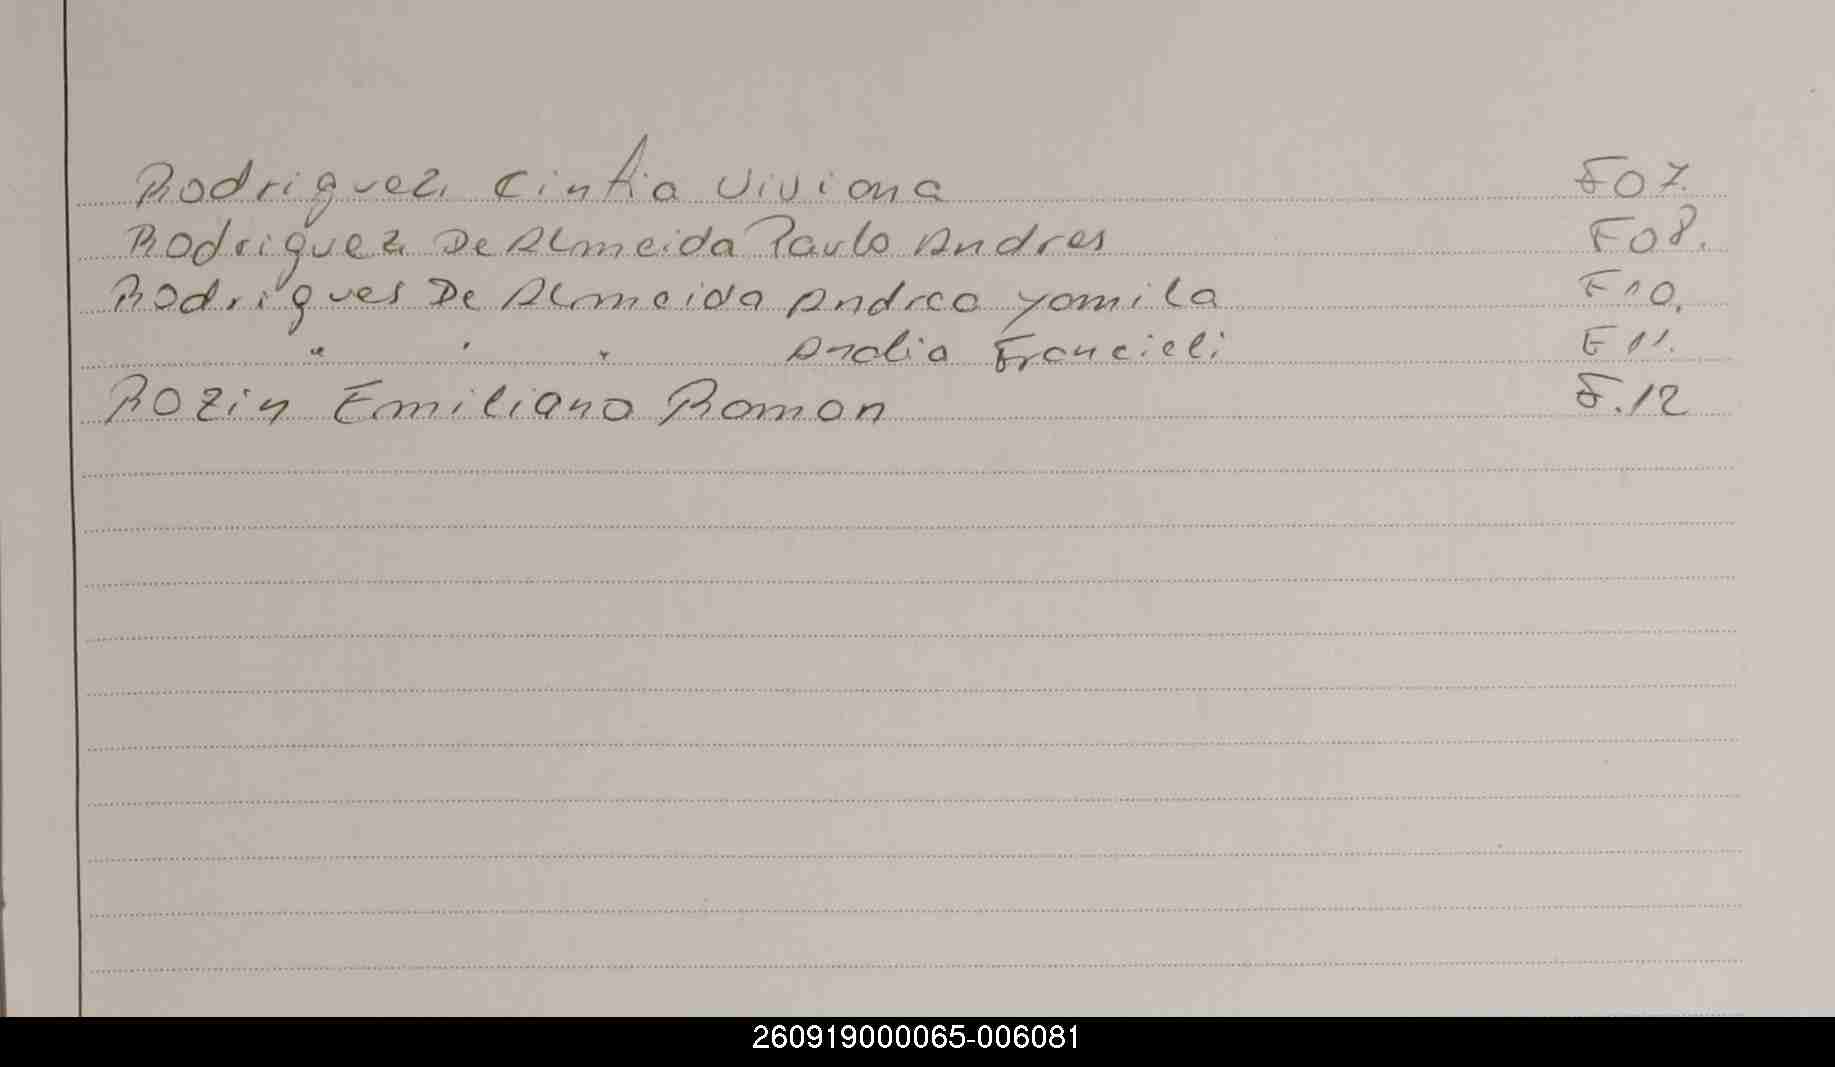 Rodriguez Cintia Viviana F07.
Rodriguez De Almeida Paulo Andres F08.
Rodrigues De Almeida Andrea Yamila F10.
" " " Analia Francieli F11.
Rozin Emiliano Roman F.12
260919000065-006081